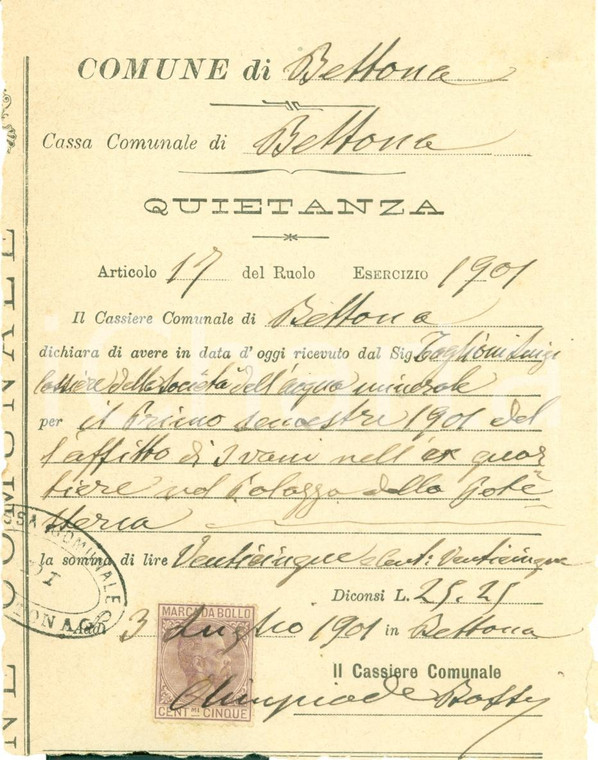 COMUNE di Bettona
Cassa Comunale di Bettona
QUIETANZA
Articolo 17 del Ruolo ESERCIZIO 1901
Il Cassiere Comunale di Bettona
dichiara di avere in data d'oggi ricevuto dal Sig Taglioni Luigi
Cassiere della Società dell'acqua minerale
per il primo semestre 1901 del
l'affitto di 3 vani nell'ex quar
tiere nel Palazzo della Pote
steria
la somma di lire Venticinque e Cent: Venticinque
Diconsi L. 25.25
Addì 3 Luglio 1901 in Bettona
Il Cassiere Comunale
Olimpiade
MARCA DA BOLLO
CENTMI CINQUE
COMUNALE
DI